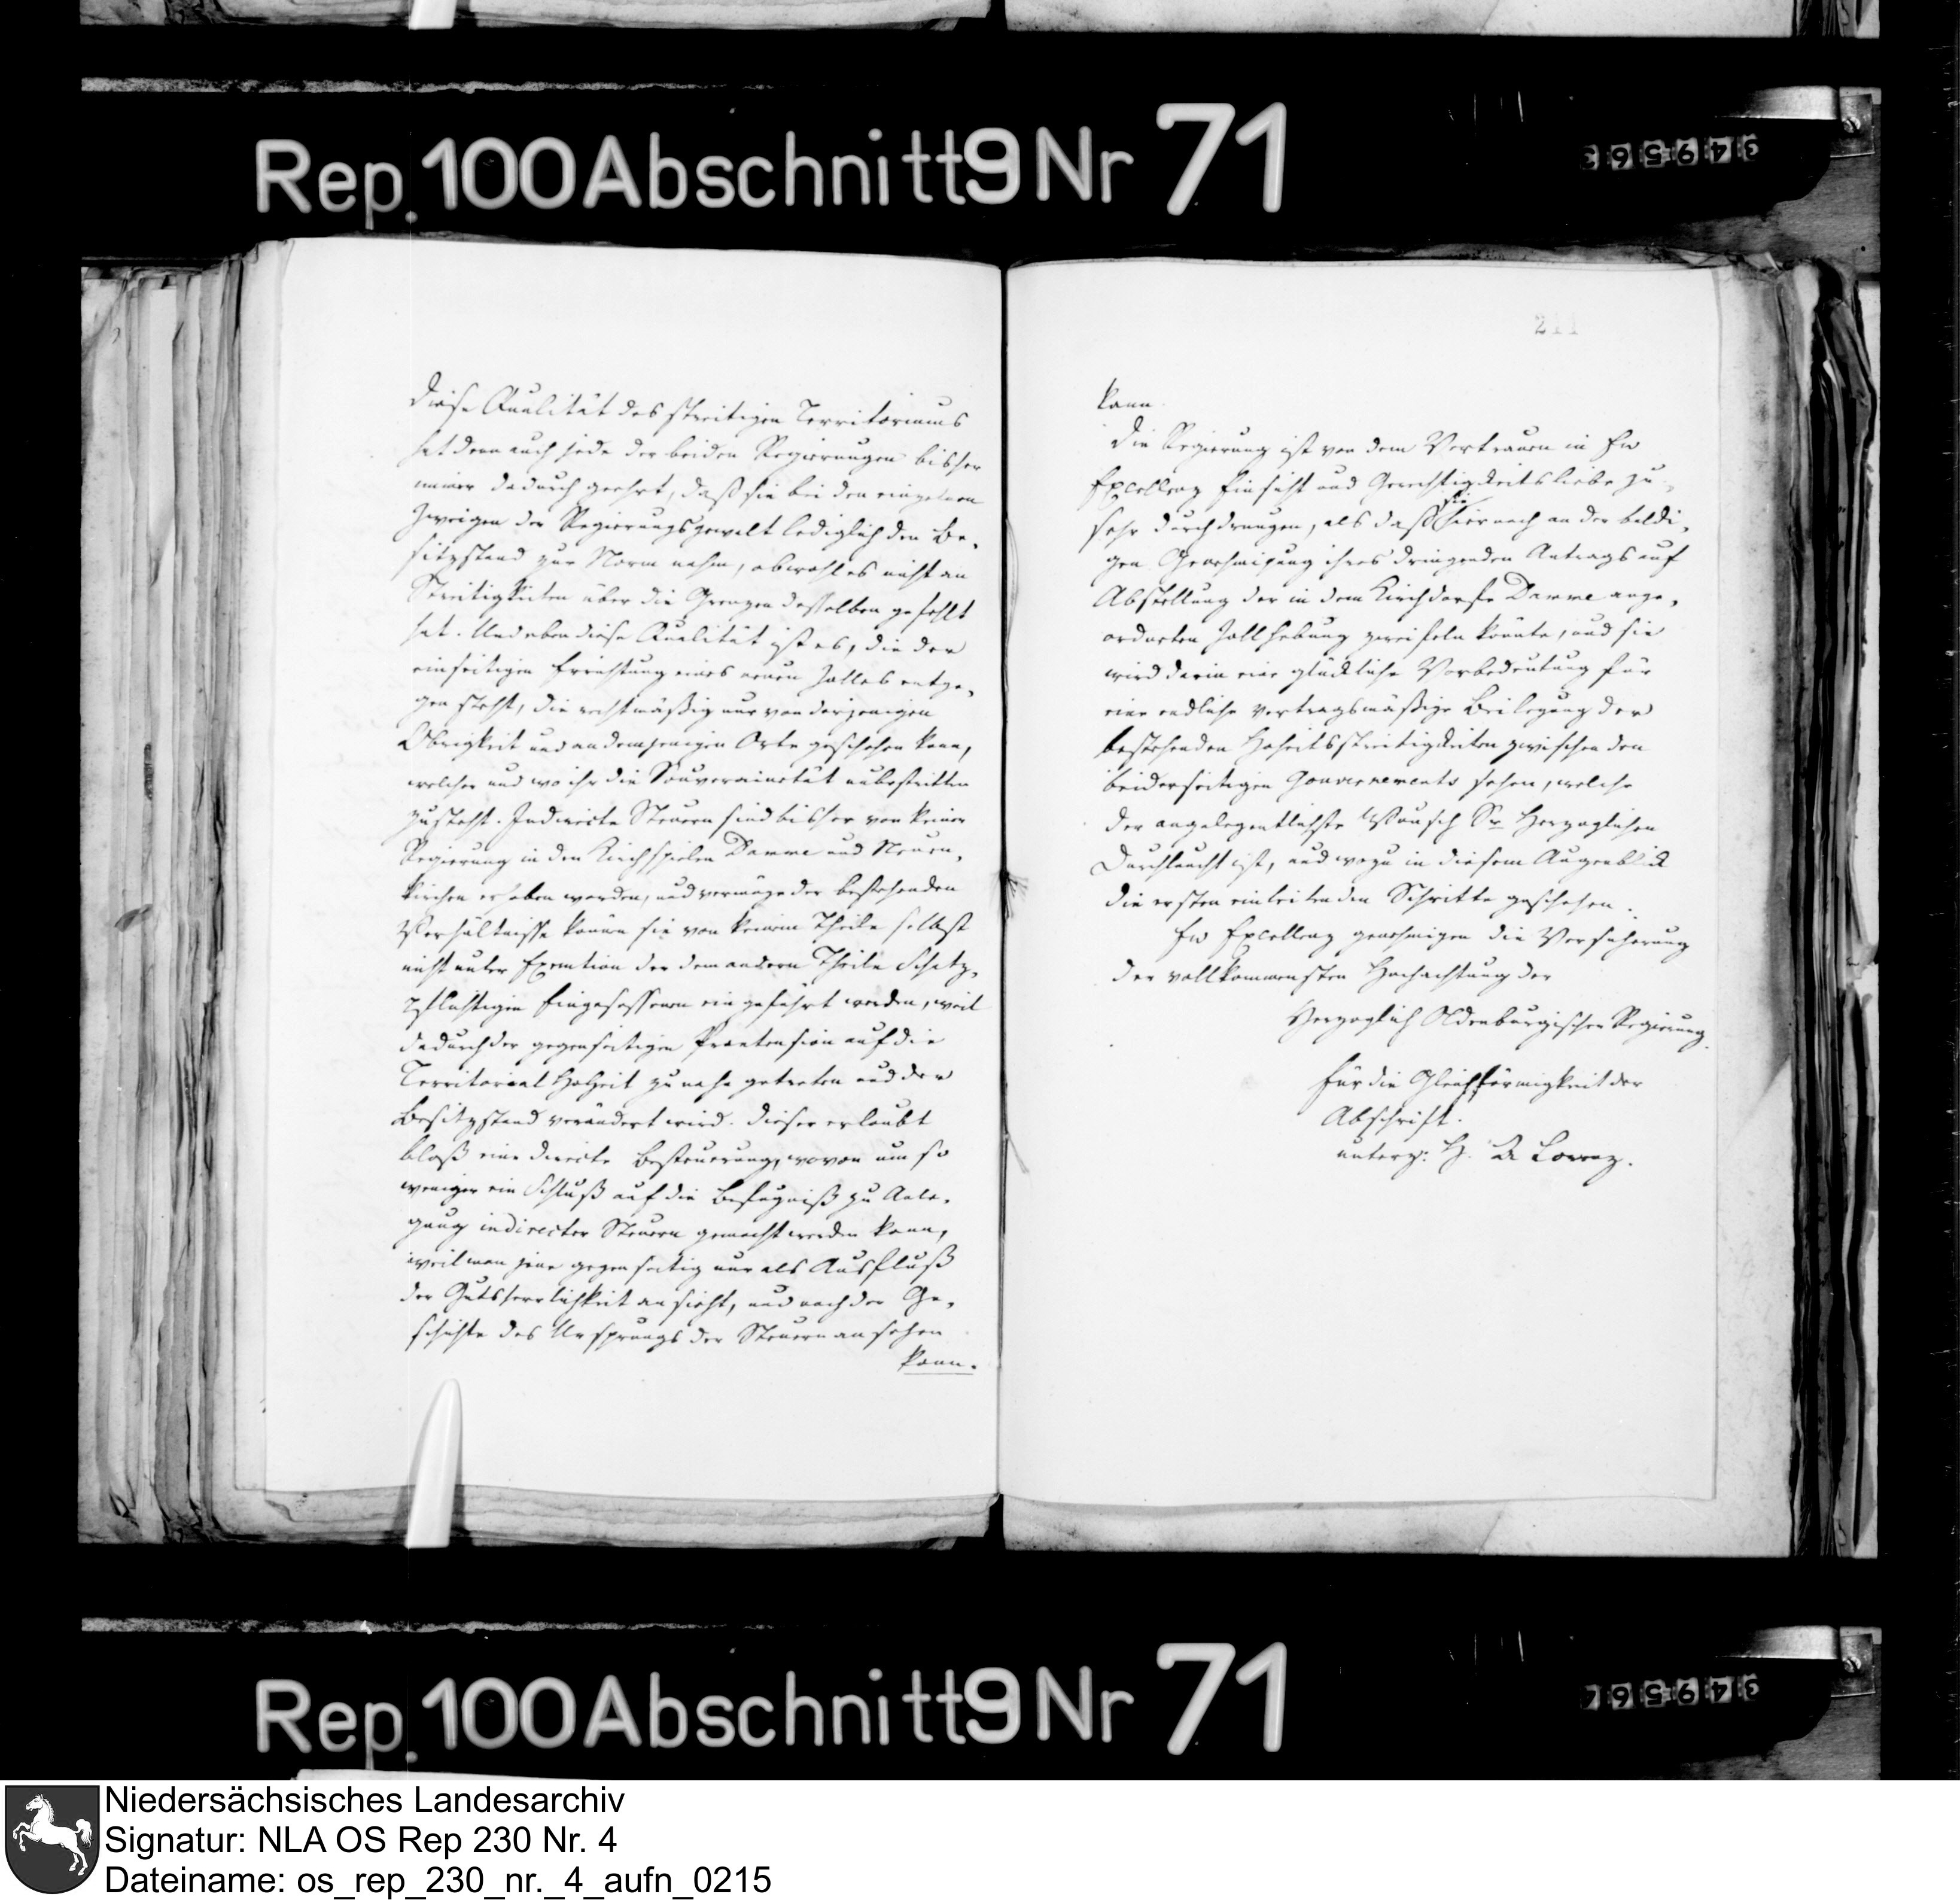 Rep. 100 Abschnitt 9 Nr 71
349563
Diese Qualität des streitigen Territoriums
hat denn auch jede der beiden Regierungen bisher
immer dadurch geehrt, daß sie bei den einzelnen
Zweigen der Regierungsgewalt lediglich den Be-
sitzstand zur Norm nahm, obwohl es nicht an
Streitigkeiten über die Grenzen desselben gefehlt
hat. Und eben diese Qualität ist es, die der
einseitigen Errichtung eines neuen Zolles entge-
gen steht, die rechtmäßig nur von derjenigen
Obrigkeit und an demjenigen Orte geschehen kann,
welcher und wo ihr die Souverainetät unbestritten
zusteht. Indirecte Steuern sind bisher von keiner
Regierung in den Kirchspielen Damme und Neuen-
kirchen erhoben worden, und vermöge der bestehenden
Verhältnisse können sie von keinem Theile selbst
nicht unter Exemtion der dem andern Theile Schatz-
pflichtigen Eingesessenen eingeführt werden, weil
dadurch der gegenseitigen Praetension auf die
Territorial Hoheit zu nahe getreten und der
Besitzstand verändert wird. Dieser erlaubt
bloß eine directe Besteuerung, wovon um so
weniger ein Schluß auf die Befugniß zu Anle-
gung indirecter Steuern gemacht werden kann,
weil man jene gegenseitig nur als Ausfluß
der Gutsherrlichkeit ansieht, und nach der Ge-
schichte des Ursprungs der Steuern ansehen
kann.
211
kann.
Die Regierung ist von dem Vertrauen in Ew
Excellenz Einsicht und Gerechtigkeitsliebe zu
sehr durchdrungen, als daß sie hiernach an der baldi-
gen Genehmigung ihres dringenden Antrags auf
Abstellung der in dem Kirchdorfe Damme ange-
ordneten Zollhebung zweifeln könnte, und sie
wird darin eine glückliche Vorbedeutung für
eine endliche vertragsmäßige Beilegung der
bestehenden Hoheitsstreitigkeiten zwischen den
beiderseitigen Gouvernements sehen, welche
der angelegentlichste Wunsch Sr Herzoglichen
Durchlaucht ist, und wozu in diesem Augenblick
die ersten einleitenden Schritte geschehen.
Ew Excellenz genehmigen die Versicherung
der vollkommensten Hochachtung der
Herzoglich Oldenburgischen Regierung.
Für die Gleichförmigkeit der
Abschrift.
unterz: H. Lorenz.
Rep. 100 Abschnitt 9 Nr 71
Niedersächsisches Landesarchiv
Signatur: NLA OS Rep 230 Nr. 4
Dateiname: os_rep_230_nr._4_aufn_0215